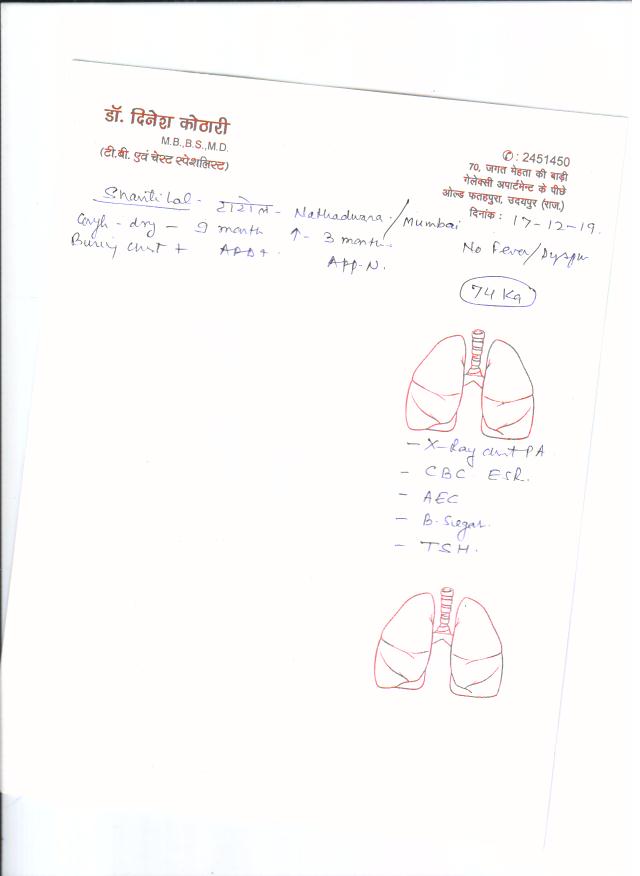 डॉ. दिनेश कोठारी
M.B.,B.S.,M.D.
(टी.बी. एवं चेस्ट स्पेशलिस्ट)
✆: 2451450
70, जगत मेहता की बाड़ी
गेलेक्सी अपार्टमेन्ट के पीछे
ओल्ड फतहपुरा, उदयपुर (राज.)
दिनांक : 17-12-19.
Shantilal - - Nathadwara / Mumbai
Cough - dry - 9 month ↑ - 3 month No Fever/
+ + App-N.
74 Kg
- X-Ray chest PA
- CBC ESR.
- AEC
- B. Sugar.
- TSH.